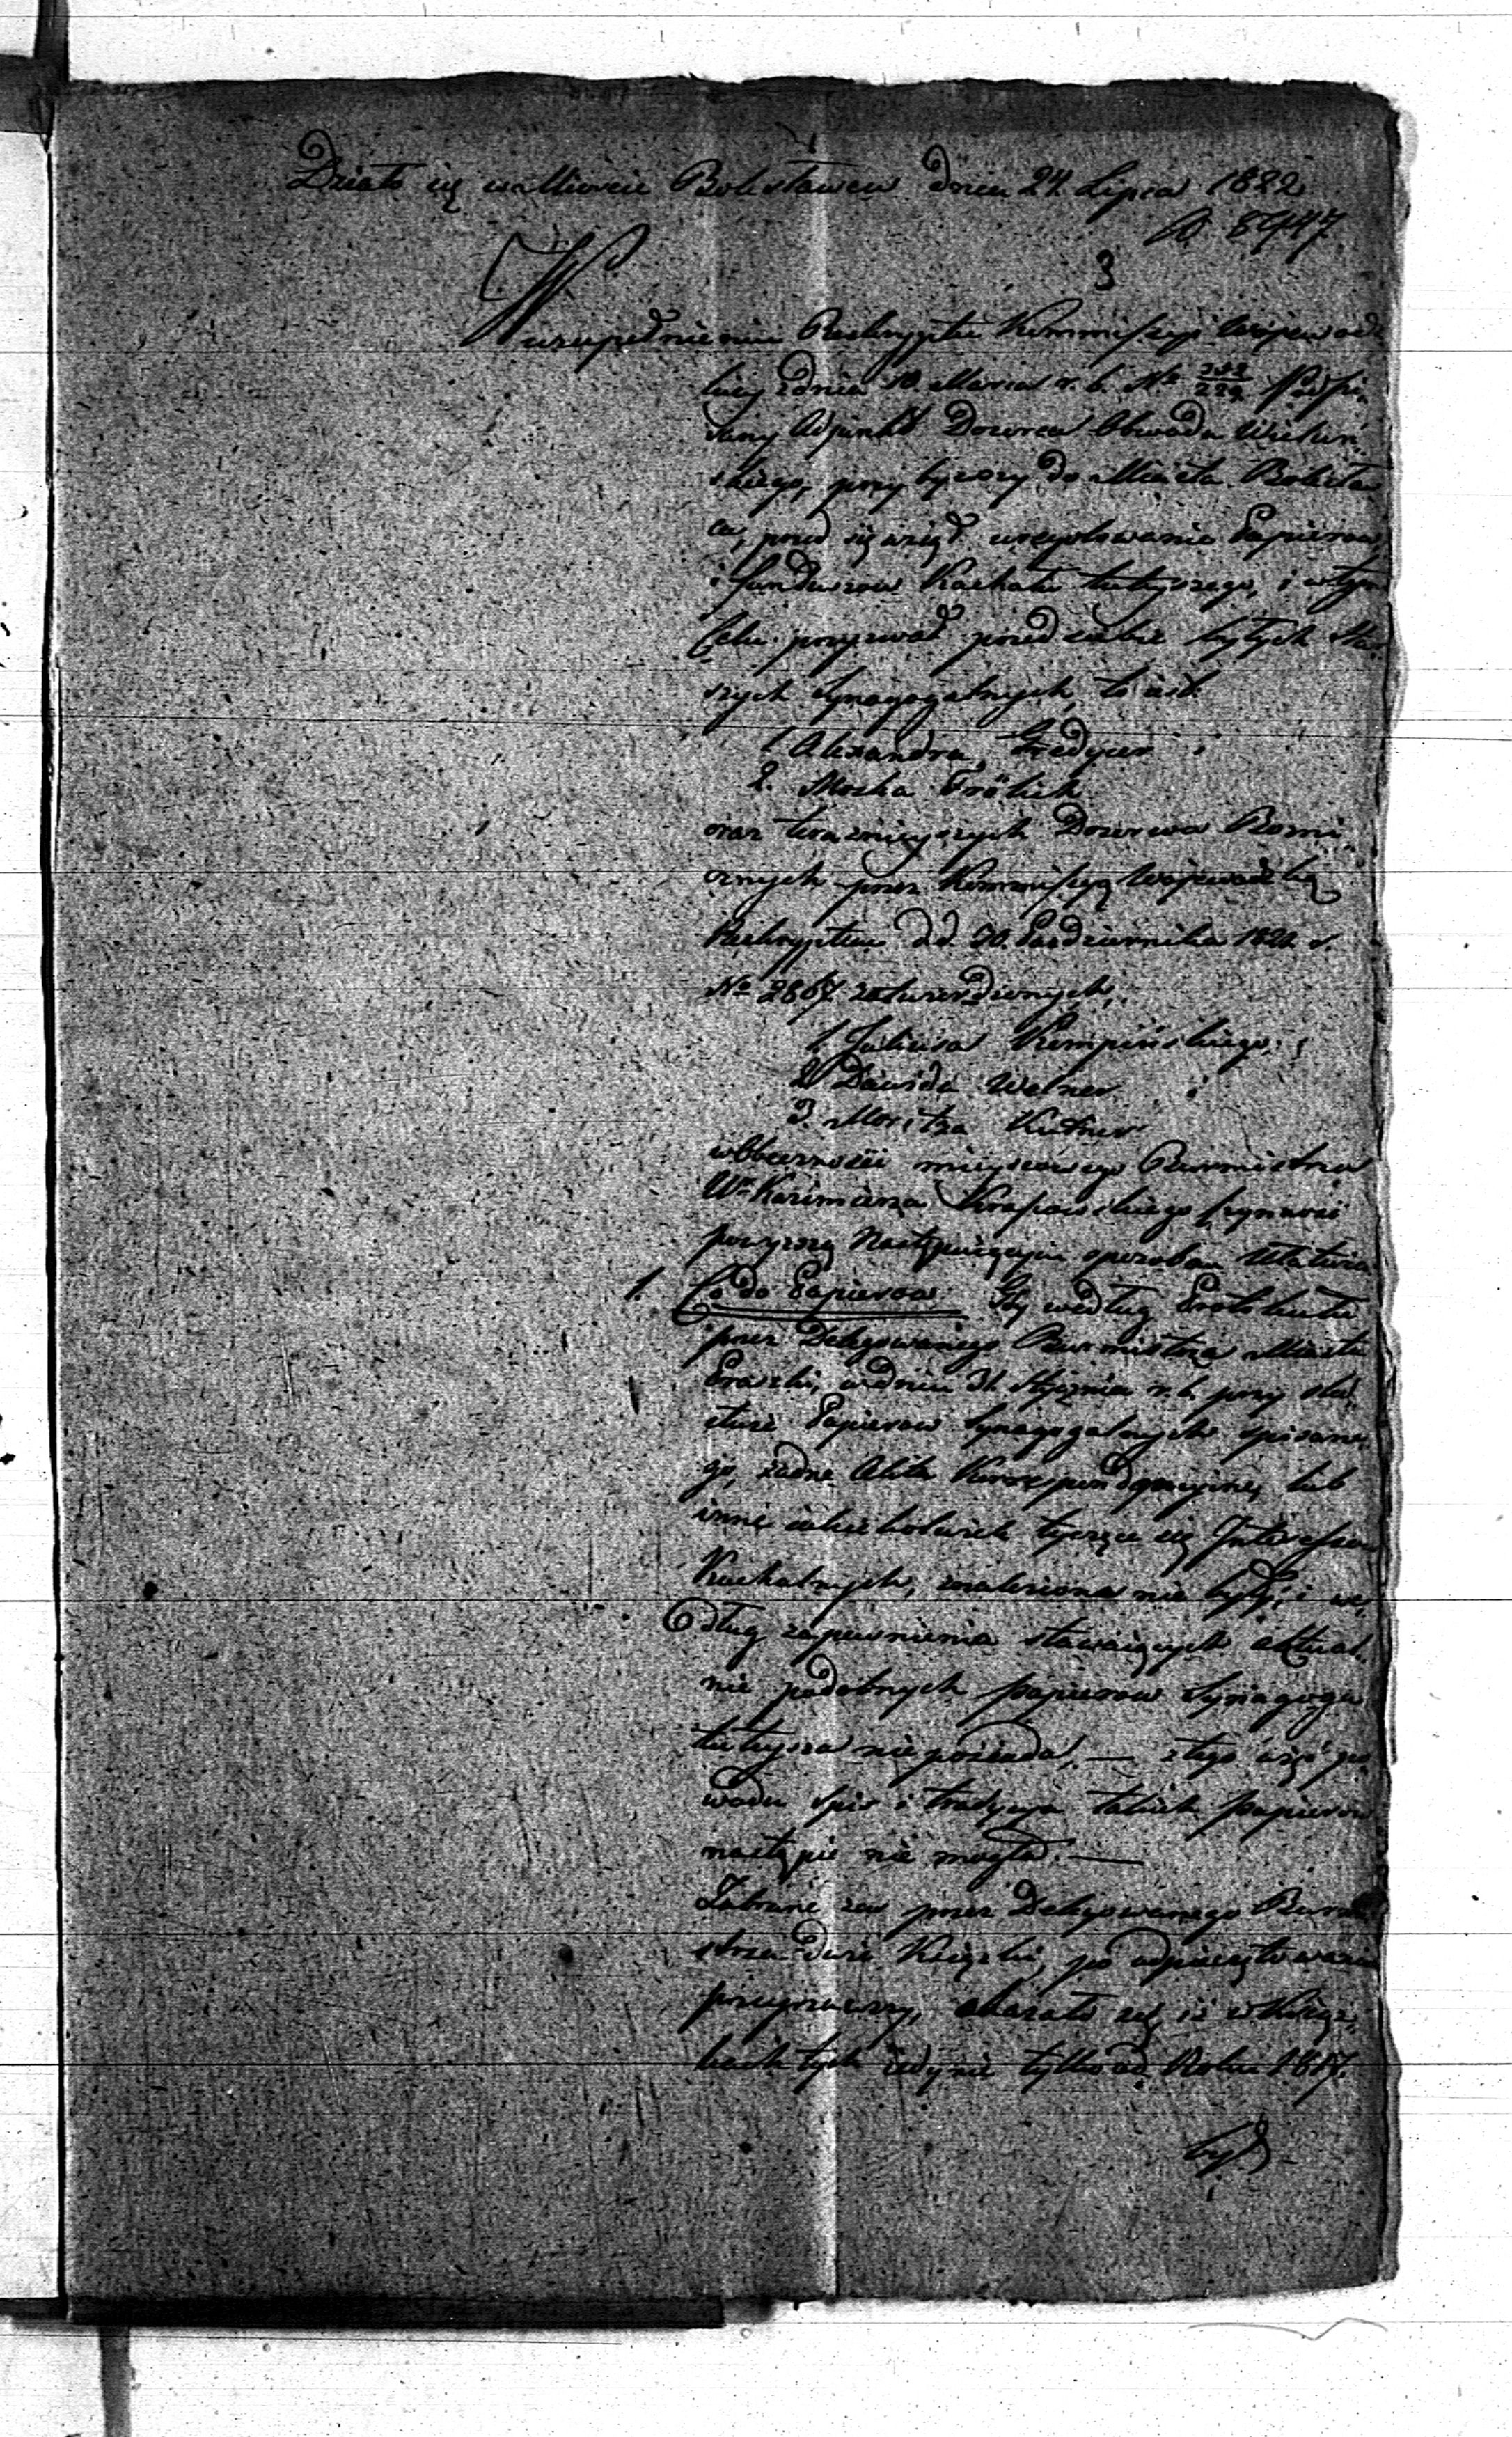 Działo się w Mieście Bolesławcu dnia 24. Lipca 1822
3
W uzupełnieniu Reskryptu Kommissyi Wojewodz
kiey z dnia 10. Marca r. b. Nº Podpi,
sany Adjunkt Dozorca Obwodu Wieluń,
skiego, przybywszy do Miasta Bolesław
ca, przed się wziął uregulowanie Papierow,
i funduszow Kachału tuteyszego, i w tym
Celu przyzwał przed siebie byłych Star,
szych Synagogalnych, to iest
1 Alexandra i
2. Moska Frölich
oraz teraznieyszych Dozorcow Bożni
cznych przez Kommissyą Wojewodzką
Reskryptem d.d. 30. Pazdziernika 1821 r.
Nº 2867. zatwierdzonych,
1 Juliusa Kempińskiego, i
2 Dawida Welner i
3. Moritza Kutner
w Obecności mieyscowego Burmistrza
Wº Kazimierza Czynność
powyższą Następuiącym sposobem ułatwia
1. Co do Papierow: Gdy według Protokułu
przez Delegowanego Burmistrza Miasta
Praszki, w dniu 31. Stycznia r. b. przy
Papierow Synagogalnych spisane,
go, żadne Akta Korrespondencyine, lub
inne iakiekolwiek tyczące się Interessow
Kachalnych, znalezione nie były, i we,
dług zapewnienia stawaiących aktual,
nie podobnych papierow Synagoga
tuteysza nie posiada, — z tego więc po
wodu spis i tradycya takich papierow
nastąpić nie mogła. —
Zabrane zas przez Delegowanego Burmi
strza dwie Książki, po odpieczętowaniu
przeyrzawszy, okazało się iż w Książ,
kach tych iedynie tylko od Roku 1817.
były